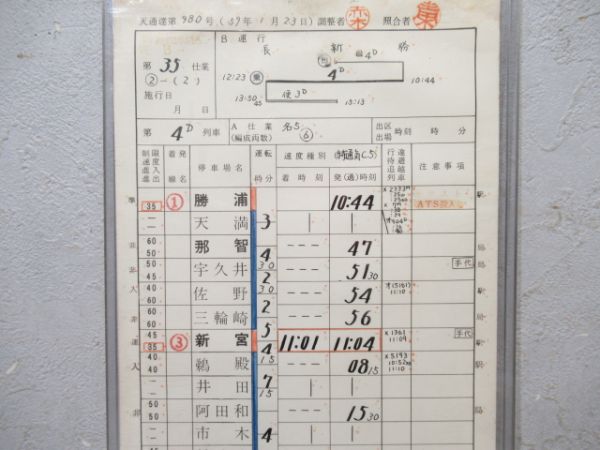 天通達第 980号 (59年1月23日) 調整者 照合者
B 運行
長 新 勝
第 35 仕業
②-(2)
施行日
月 日
4D
12:23 10:44
13:50 便3D 15:13
第 4D 列車 A 仕業 名5
(編成両数) ⑥
出区
出場 時刻 時 分
制限速度 進入 進出 着発線名 停車場名 運転時分 速度種別 着時刻 発(通)時刻 行違 待避 追越 列車 注意事項
35 ① 勝浦 10:44 ATS投入
天満 3
60 50 那智 --- 47
4
50 45 宇久井 --- 51 30 手代
2
40 50 佐野 --- 54
2
60 50 三輪崎 --- 56
5
45 35 ③ 新宮 11:01 11:04 手代
4 15
40 40 鵜殿 --- 08 15
7 15
井田
50 50 阿田和 --- 15 30
市木 4